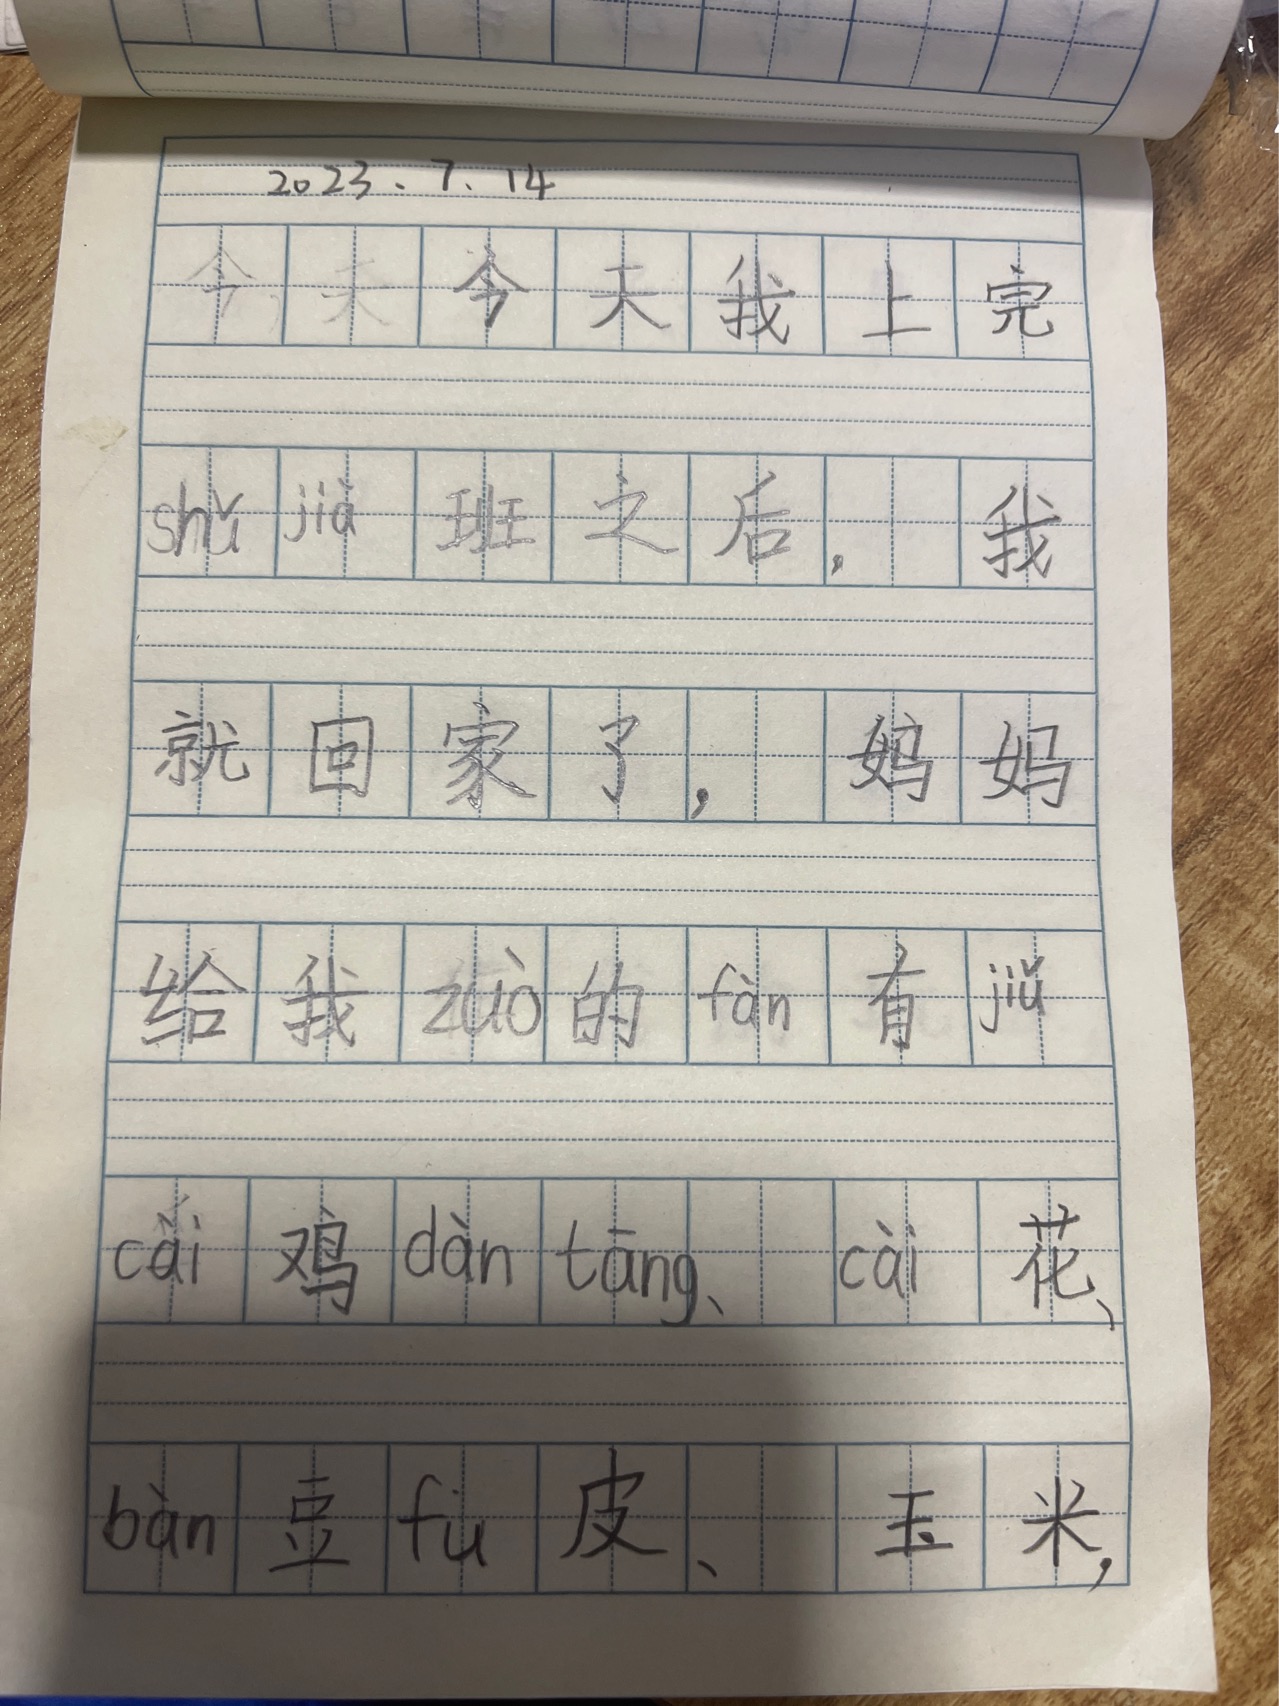 2023、7、14
今天今天我上完
shǔ jià 班之后，我
就回家了，妈妈
给我 zuò 的 fàn 有 jiǔ
cǎi 鸡 dàn tāng、cài 花、
bàn 豆 fù 皮、玉米，